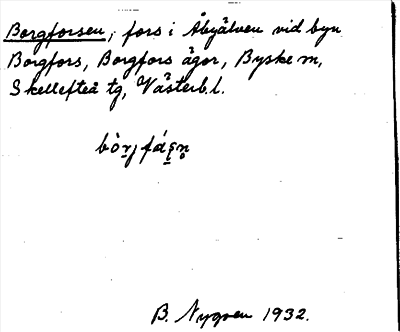 Borgforsen, fors i Åbyälven vid byn
Borgfors, Borgfors ägor, Byske sn,
Skellefteå tg, Västerb.l.
B. Nygren 1932.